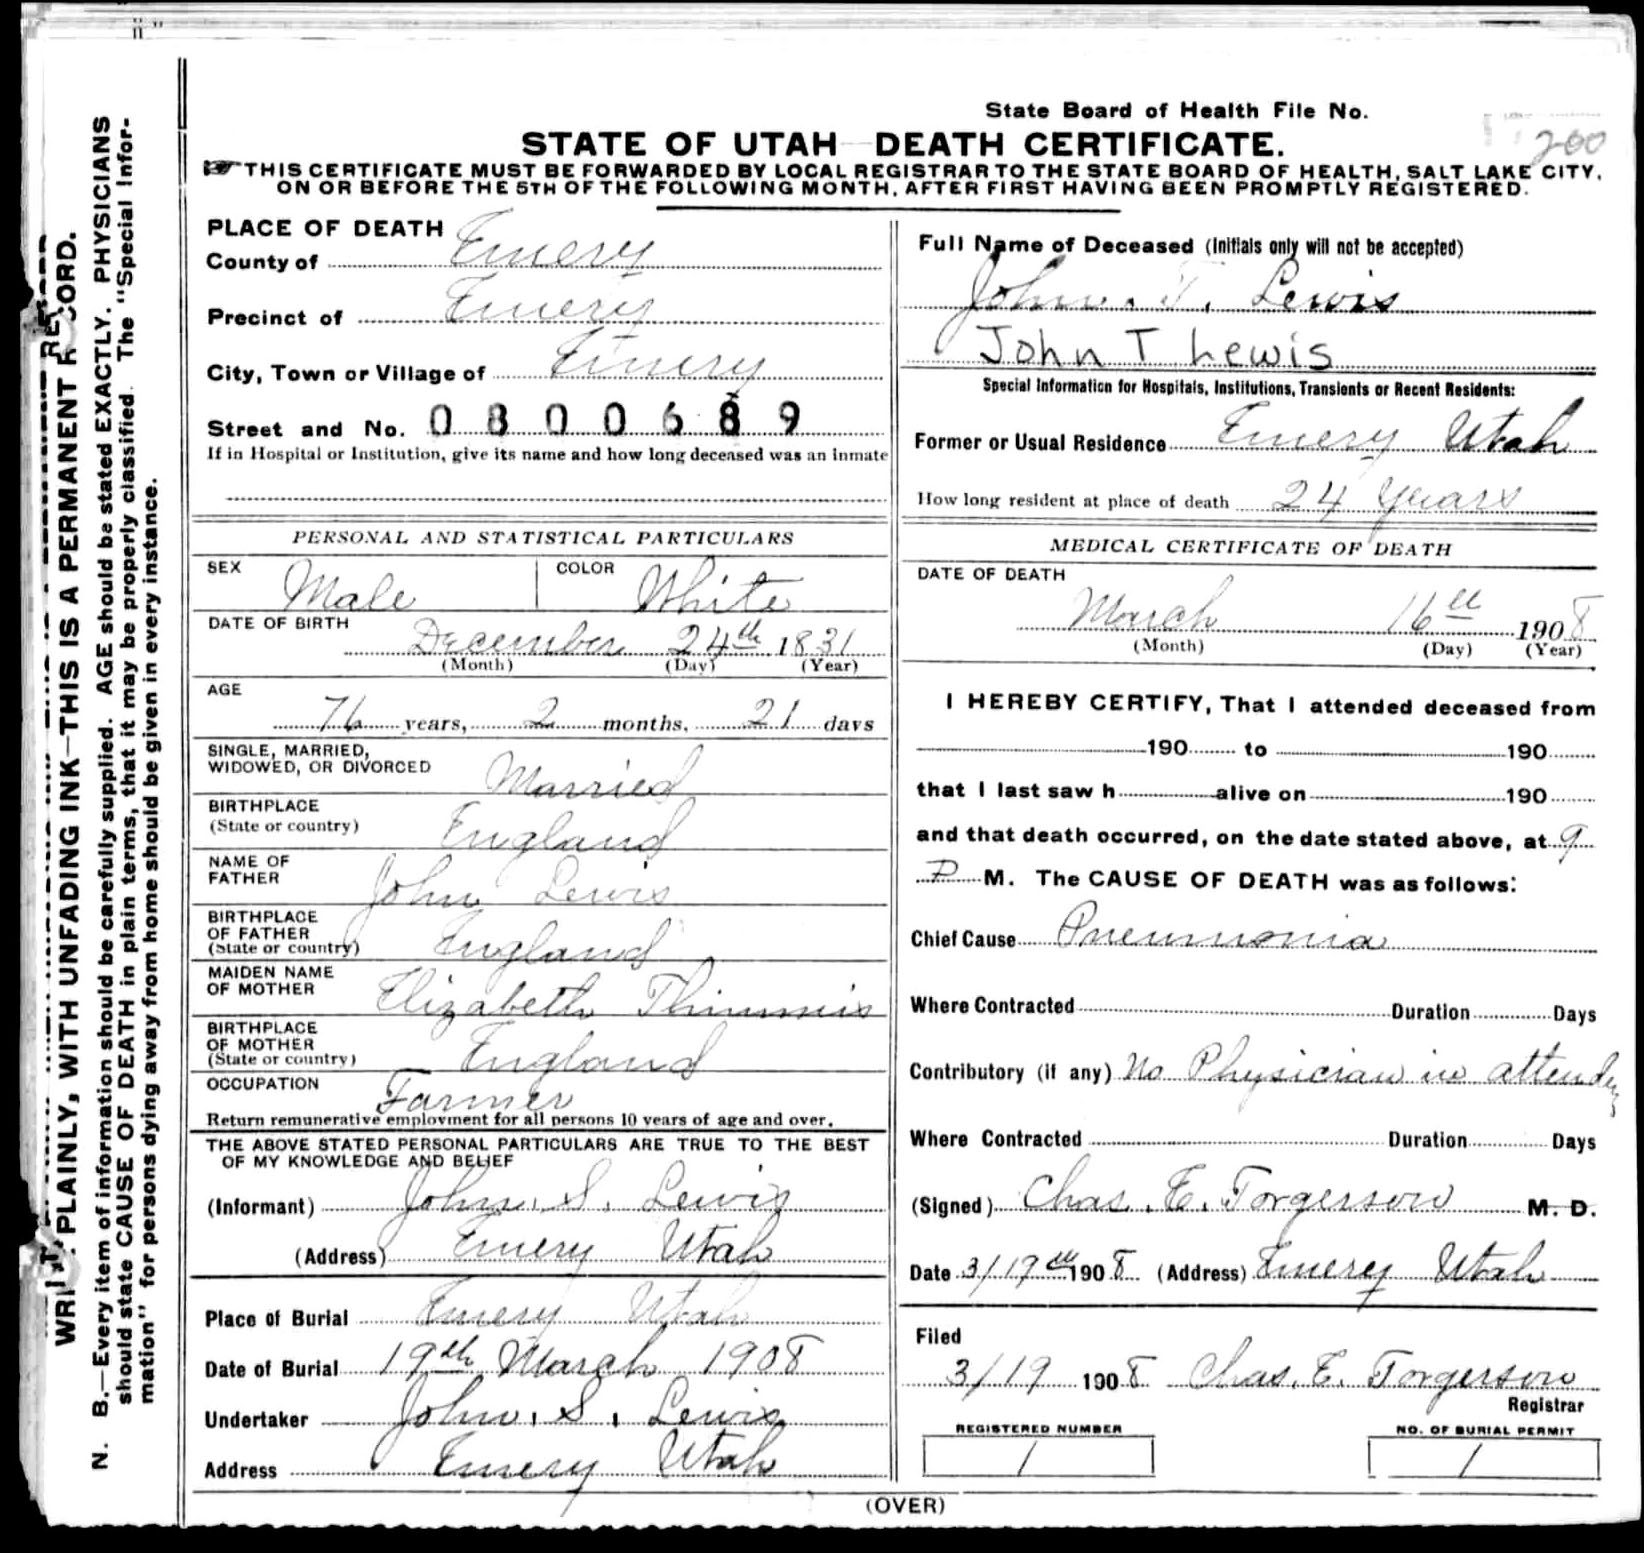 State Board of Health File No.
200
STATE OF UTAH—DEATH CERTIFICATE.
☞ THIS CERTIFICATE MUST BE FORWARDED BY LOCAL REGISTRAR TO THE STATE BOARD OF HEALTH, SALT LAKE CITY,
ON OR BEFORE THE 5TH OF THE FOLLOWING MONTH, AFTER FIRST HAVING BEEN PROMPTLY REGISTERED.
WRITE PLAINLY, WITH UNFADING INK—THIS IS A PERMANENT RECORD.
N. B.—Every item of information should be carefully supplied. AGE should be stated EXACTLY. PHYSICIANS
should state CAUSE OF DEATH in plain terms, that it may be properly classified. The "Special Infor-
mation" for persons dying away from home should be given in every instance.
PLACE OF DEATH
County of Emery
Precinct of Emery
City, Town or Village of Emery
Street and No. 0800689
If in Hospital or Institution, give its name and how long deceased was an inmate
PERSONAL AND STATISTICAL PARTICULARS
SEX Male COLOR White
DATE OF BIRTH
December 24th 1831
(Month) (Day) (Year)
AGE
76 years, 2 months, 21 days
SINGLE, MARRIED,
WIDOWED, OR DIVORCED Married
BIRTHPLACE
(State or country) England
NAME OF
FATHER John Lewis
BIRTHPLACE
OF FATHER
(State or country) England
MAIDEN NAME
OF MOTHER Elizabeth
BIRTHPLACE
OF MOTHER
(State or country) England
OCCUPATION Farmer
Return remunerative employment for all persons 10 years of age and over.
THE ABOVE STATED PERSONAL PARTICULARS ARE TRUE TO THE BEST
OF MY KNOWLEDGE AND BELIEF
(Informant) John. S. Lewis
(Address) Emery Utah
Place of Burial Emery Utah
Date of Burial 19th March 1908
Undertaker John. S. Lewis
Address Emery Utah
Full Name of Deceased (Initials only will not be accepted)
John. T. Lewis
John T Lewis
Special Information for Hospitals, Institutions, Transients or Recent Residents:
Former or Usual Residence Emery Utah
How long resident at place of death 24 years
MEDICAL CERTIFICATE OF DEATH
DATE OF DEATH
March 16th 1908
(Month) (Day) (Year)
I HEREBY CERTIFY, That I attended deceased from
190 to 190
that I last saw h alive on 190
and that death occurred, on the date stated above, at 9
P M. The CAUSE OF DEATH was as follows:
Chief Cause Pneumonia
Where Contracted Duration Days
Contributory (if any) No Physician in
Where Contracted Duration Days
(Signed) Chas. E. Torgerson M. D.
Date 3/19th 1908 (Address) Emery Utah
Filed
3/19 1908 Chas. E. Torgerson
Registrar
REGISTERED NUMBER
1
NO. OF BURIAL PERMIT
1
(OVER)